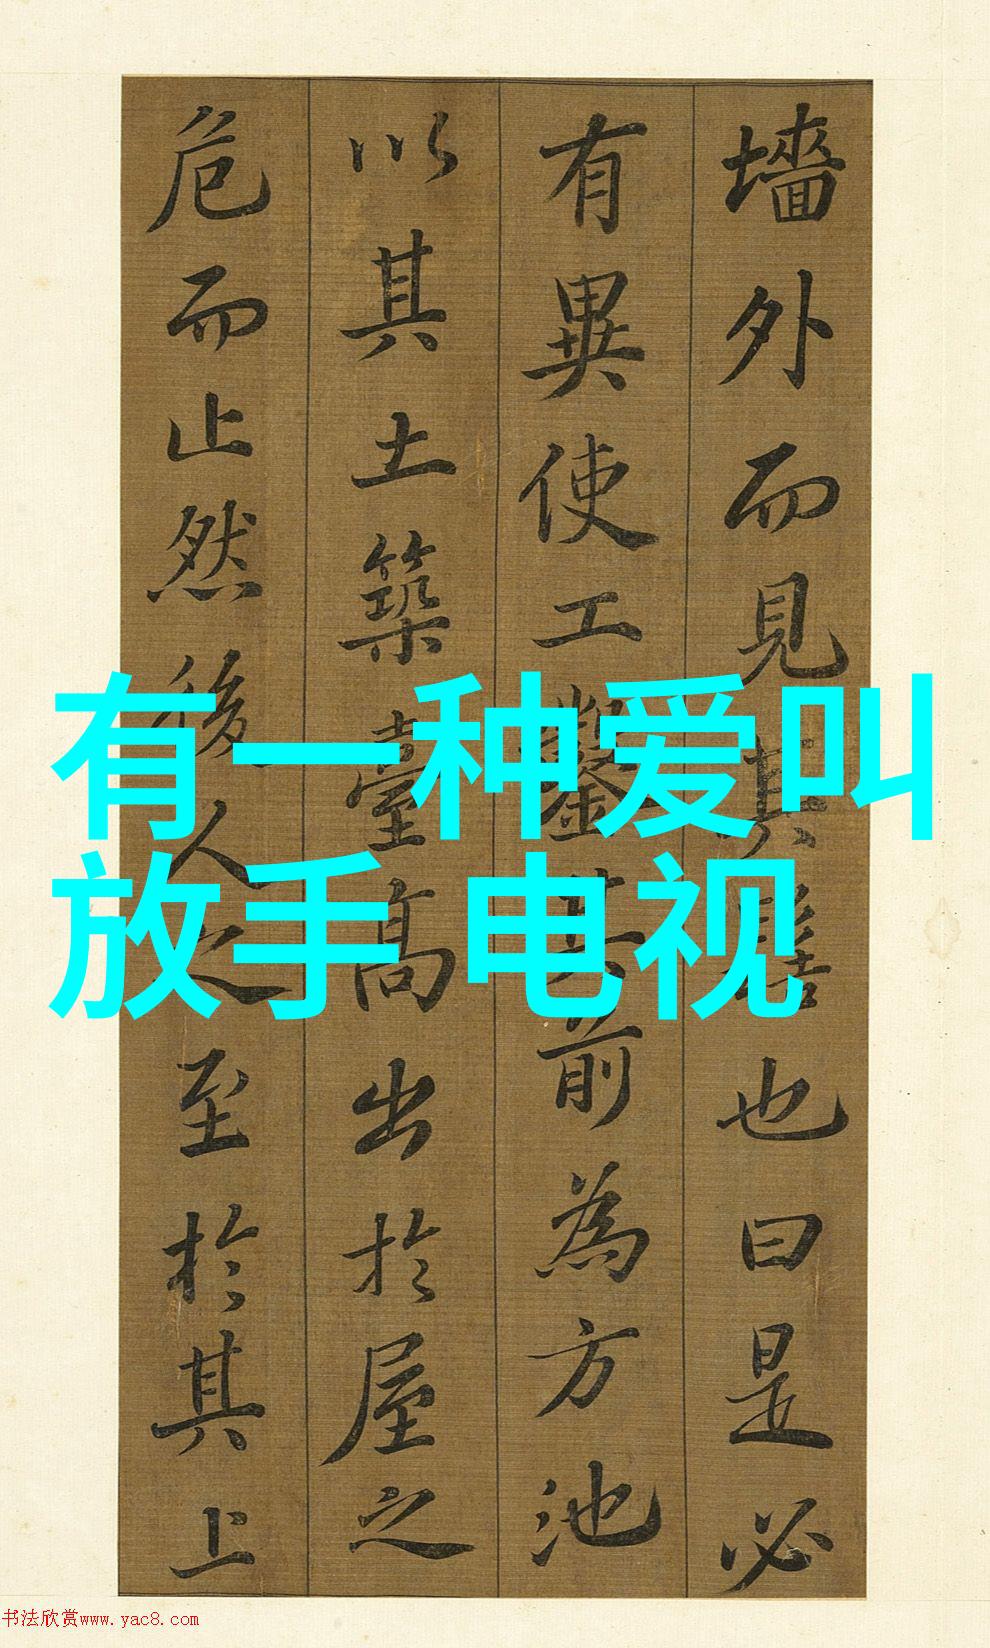 墙外而見其髻也曰是必
有異使工鑿其前為方池
以其土築臺高出於屋之
危而止然後人之至於其上
有一种爱叫
放手 电视
书法欣赏www.yac8.com